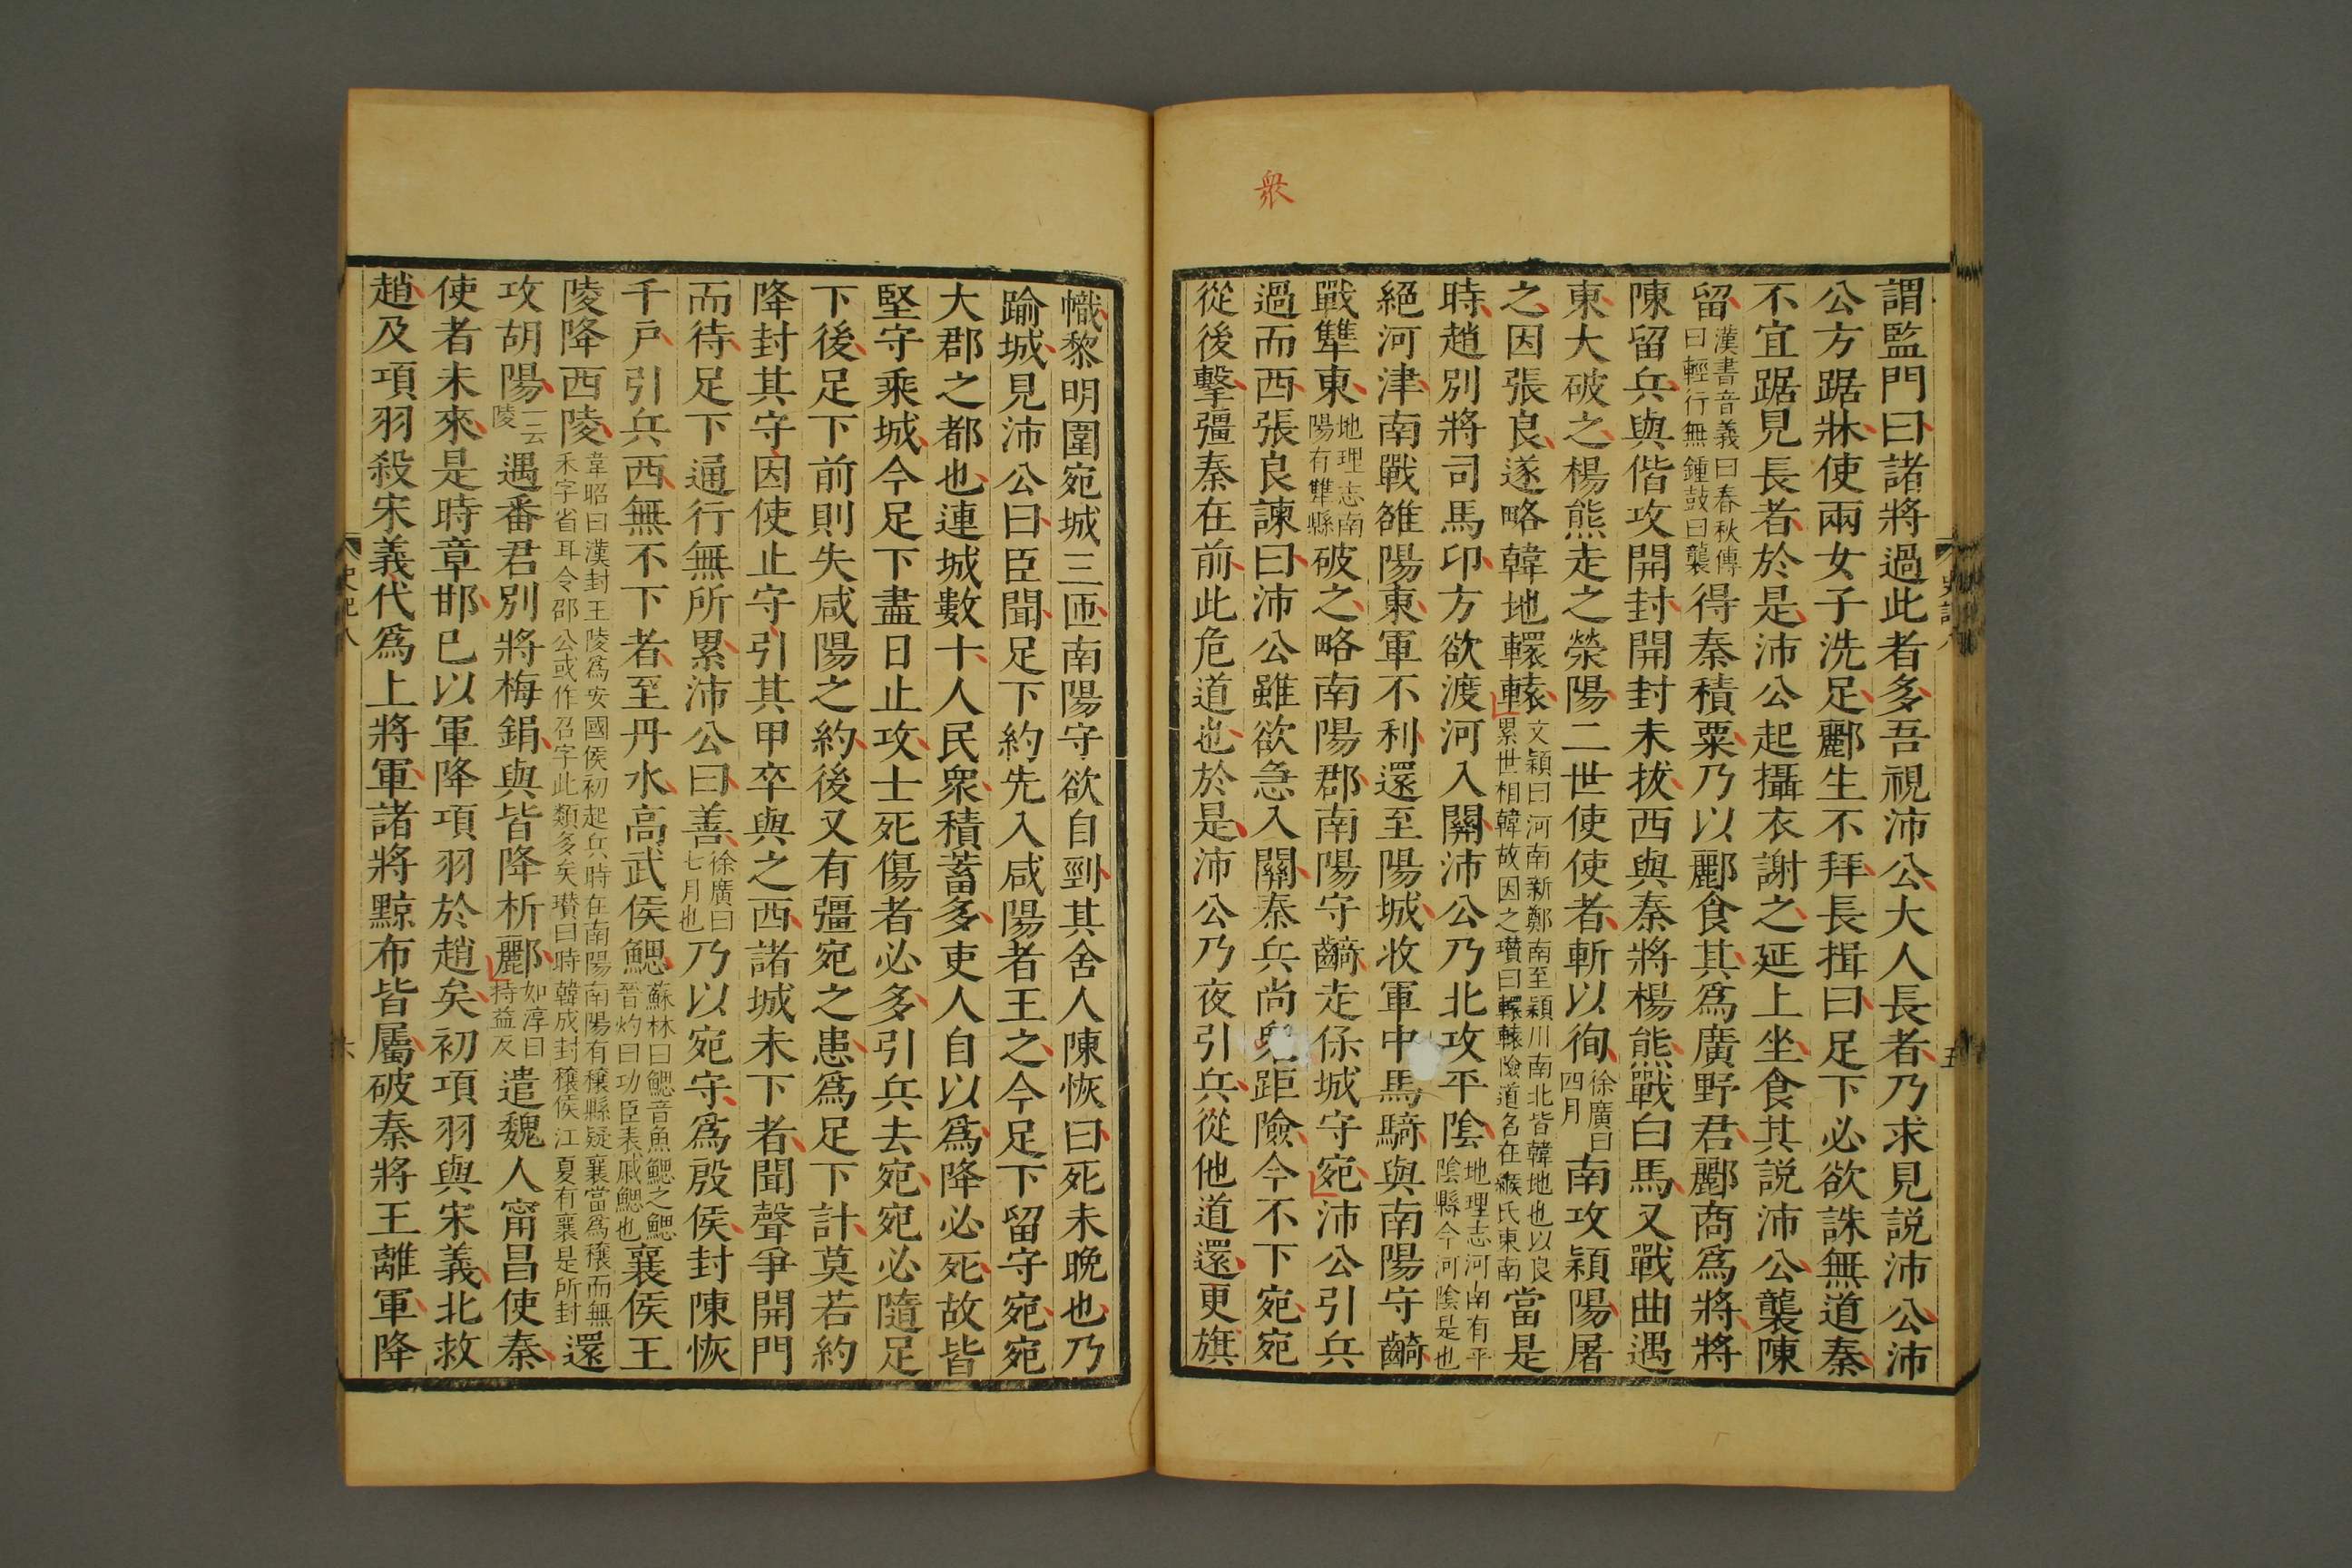 衆
謂監門曰諸將過此者多吾視沛公大人長者乃求見說沛公沛
公方踞牀使兩女子洗足酈生不拜長揖曰足下必欲誅無道秦
不宜踞見長者於是沛公起攝衣謝之延上坐食其說沛公襲陳
留漢書音義曰春秋傳曰輕行無鍾鼓曰襲得秦積粟乃以酈食其爲廣野君酈商爲將將
陳留兵與偕攻開封開封未拔西與秦將楊熊戰白馬又戰曲遇
東大破之楊熊走之滎陽二世使使者斬以徇徐廣曰四月南攻潁陽屠
之因張良遂略韓地轘轅文穎曰河南新鄭南至潁川南北皆韓地也以良累世相韓故因之瓚曰轘轅險道名在緱氏東南當是
時趙別將司馬卬方欲渡河入關沛公乃北攻平陰地理志河南有平陰縣今河陰是也
絕河津南戰雒陽東軍不利還至陽城收軍中馬騎與南陽守齮
戰犨東地理志南陽有犨縣破之略南陽郡南陽守齮走保城守宛沛公引兵
過而西張良諫曰沛公雖欲急入關秦兵尚衆距險今不下宛宛
從後擊彊秦在前此危道也於是沛公乃夜引兵從他道還更旗
史記八
五
幟黎明圍宛城三匝南陽守欲自剄其舍人陳恢曰死未晚也乃
踰城見沛公曰臣聞足下約先入咸陽者王之今足下留守宛宛
大郡之都也連城數十人民衆積蓄多吏人自以爲降必死故皆
堅守乘城今足下盡日止攻士死傷者必多引兵去宛宛必隨足
下後足下前則失咸陽之約後又有彊宛之患爲足下計莫若約
降封其守因使止守引其甲卒與之西諸城未下者聞聲爭開門
而待足下通行無所累沛公曰善徐廣曰七月也乃以宛守爲殷侯封陳恢
千戶引兵西無不下者至丹水高武侯鰓蘇林曰鰓音魚鰓之鰓晉灼曰功臣表戚鰓也襄侯王
陵降西陵韋昭曰漢封王陵爲安國侯初起兵時在南陽南陽有穰縣疑襄當爲穰而無禾字省耳今邵公或作召字此類多矣瓚曰時韓成封穰侯江夏有襄是所封還
攻胡陽一云陵遇番君別將梅鋗與皆降析酈如淳曰持益反遣魏人甯昌使秦
使者未來是時章邯已以軍降項羽於趙矣初項羽與宋義北救
趙及項羽殺宋義代爲上將軍諸將黥布皆屬破秦將王離軍降
史記八
六